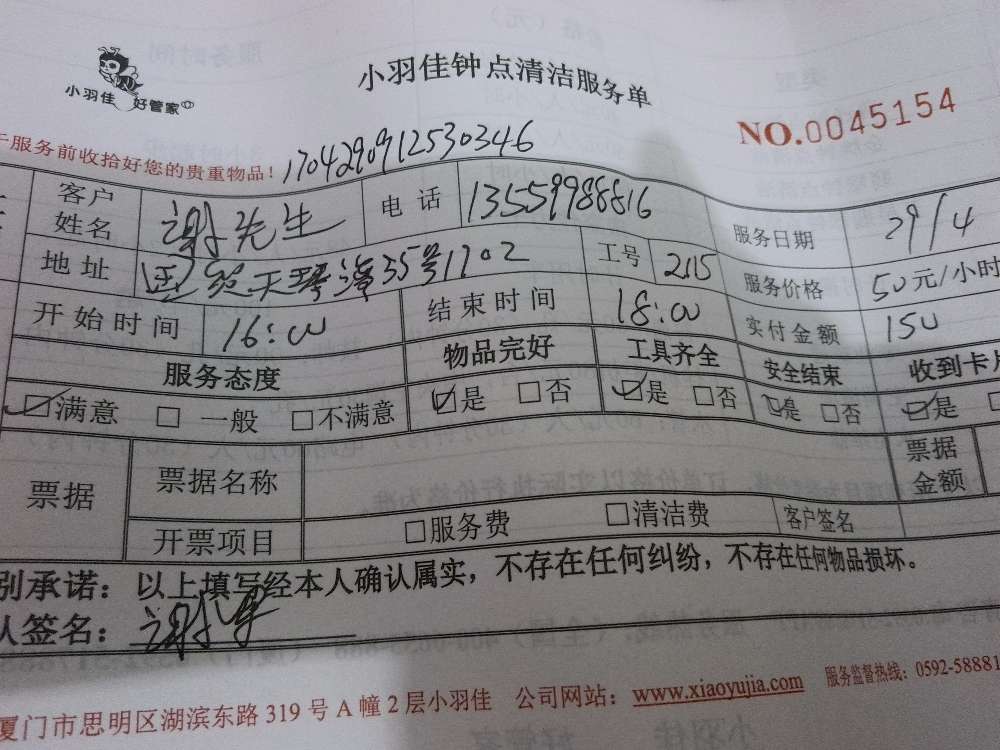 小羽佳 好管家
小羽佳钟点清洁服务单
NO.0045154
服务前收拾好您的贵重物品！ 1704290912530346
客户姓名 谢先生 电话 13559988816 服务日期 29/4
地址 天琴湾35号1702 工号 2115 服务价格 50元/小时
开始时间 16:00 结束时间 18:00 实付金额 150
服务态度 物品完好 工具齐全 安全结束 收到卡
☑满意 □一般 □不满意 ☑是 □否 ☑是 □否 ☑是 □否 ☑是
票据 票据名称 票据金额
开票项目 □服务费 □清洁费 客户签名
别承诺：以上填写经本人确认属实，不存在任何纠纷，不存在任何物品损坏。
人签名：谢
厦门市思明区湖滨东路319号A幢2层小羽佳 公司网站：www.xiaoyujia.com 服务监督热线：0592-58881